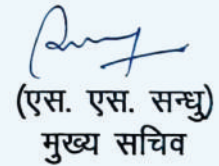 (एस. एस. सन्धु)
मुख्य सचिव